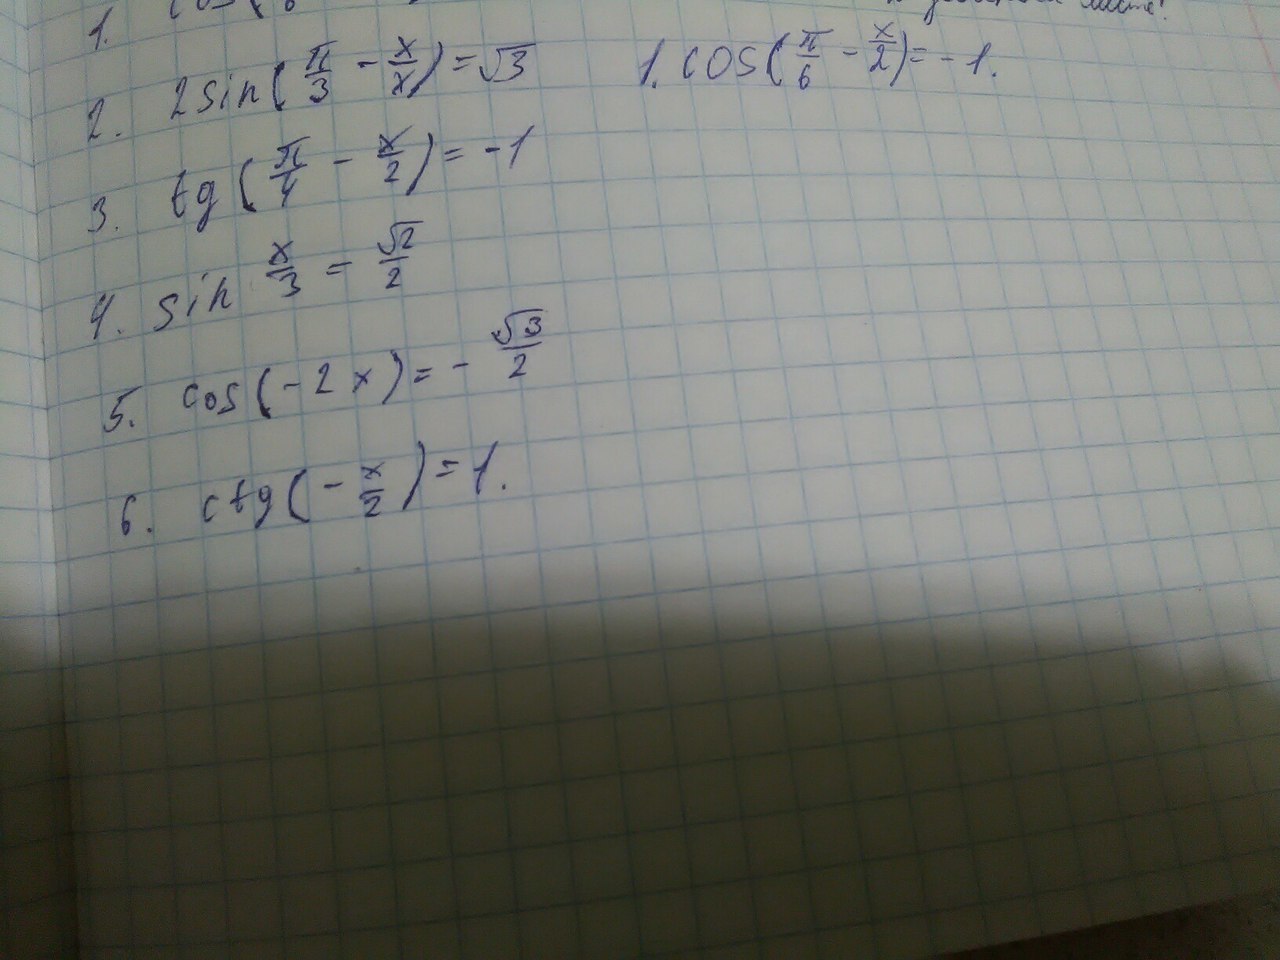 1. cos(
2. 2sin(π/3 - x/x) = √3
1. cos(π/6 - x/2) = -1.
3. tg(π/4 - x/2) = -1
4. sin x/3 = √2/2
5. cos(-2x) = - √3/2
6. ctg(- x/2) = 1.